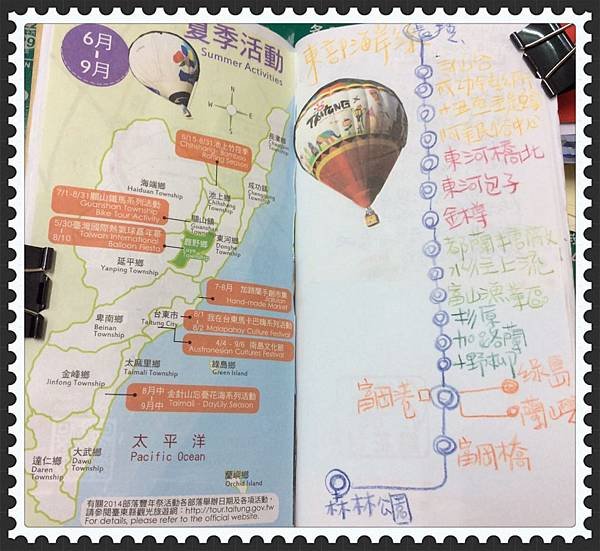 6月
~
9月
夏季活動
Summer Activities
N
W
E
S
長濱鄉
5/15-8/31池上竹筏季
Chihshang- Bamboo
Rafting Season
海端鄉
Haiduan Township
成功鎮
池上鄉
Chihshang
Township
7/1-8/31關山鐵馬系列活動
Guanshan Township
Bike Tour Activity
關山鎮
5/30臺灣國際熱氣球嘉年華
8/10
Taiwan International
Balloon Fiesta
鹿野鄉
東河鄉
Donghe
Township
延平鄉
Yanping Township
7-8月 加路蘭手創市集
Jialulan
Hand-made Market
卑南鄉
Beinan
Township
台東市
Taitung City
8/1 我在台東馬卡巴嗨系列活動
8/2 Malapahoy Culture Festival
4/4 - 9/6 南島文化節
Austronesian Cultures Festival
太麻里鄉
Taimali Township
綠島鄉
Green Island
金峰鄉
Jinfong Township
8月中
~
9月中
金針山忘憂花海系列活動
Taimali - DayLily Season
太平洋
Pacific Ocean
達仁鄉
Daren
Township
大武鄉
Dawu
Township
蘭嶼鄉
Orchid Island
有關2014部落豐年祭活動各部落舉辦日期及各項活動,
請參閱臺東縣觀光旅遊網:http://tour.taitung.gov.tw
For details, please refer to the official website.
東部海岸
TAITUNG
東河橋北
東河包子
金樽
水往上流
富山漁業區
杉原
加路蘭
小野柳
綠島
富岡港口
蘭嶼
富岡橋
森林公園